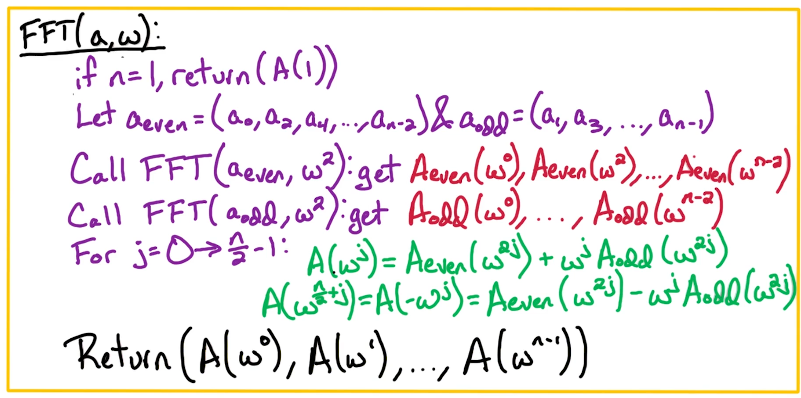 FFT(a,ω):
if n=1, return(A(1))
Let a_even=(a₀,a₂,a₄,...,a_{n-2}) & a_odd=(a₁,a₃,...,a_{n-1})
Call FFT(a_even,ω²): get A_even(ω⁰),A_even(ω²),...,A_even(ω^{n-2})
Call FFT(a_odd,ω²): get A_odd(ω⁰),...,A_odd(ω^{n-2})
For j=0→n/2-1:
A(ω^j)=A_even(ω^{2j})+ω^j A_odd(ω^{2j})
A(ω^{n/2+j})=A(-ω^j)=A_even(ω^{2j})-ω^j A_odd(ω^{2j})
Return(A(ω⁰),A(ω¹),...,A(ω^{n-1}))